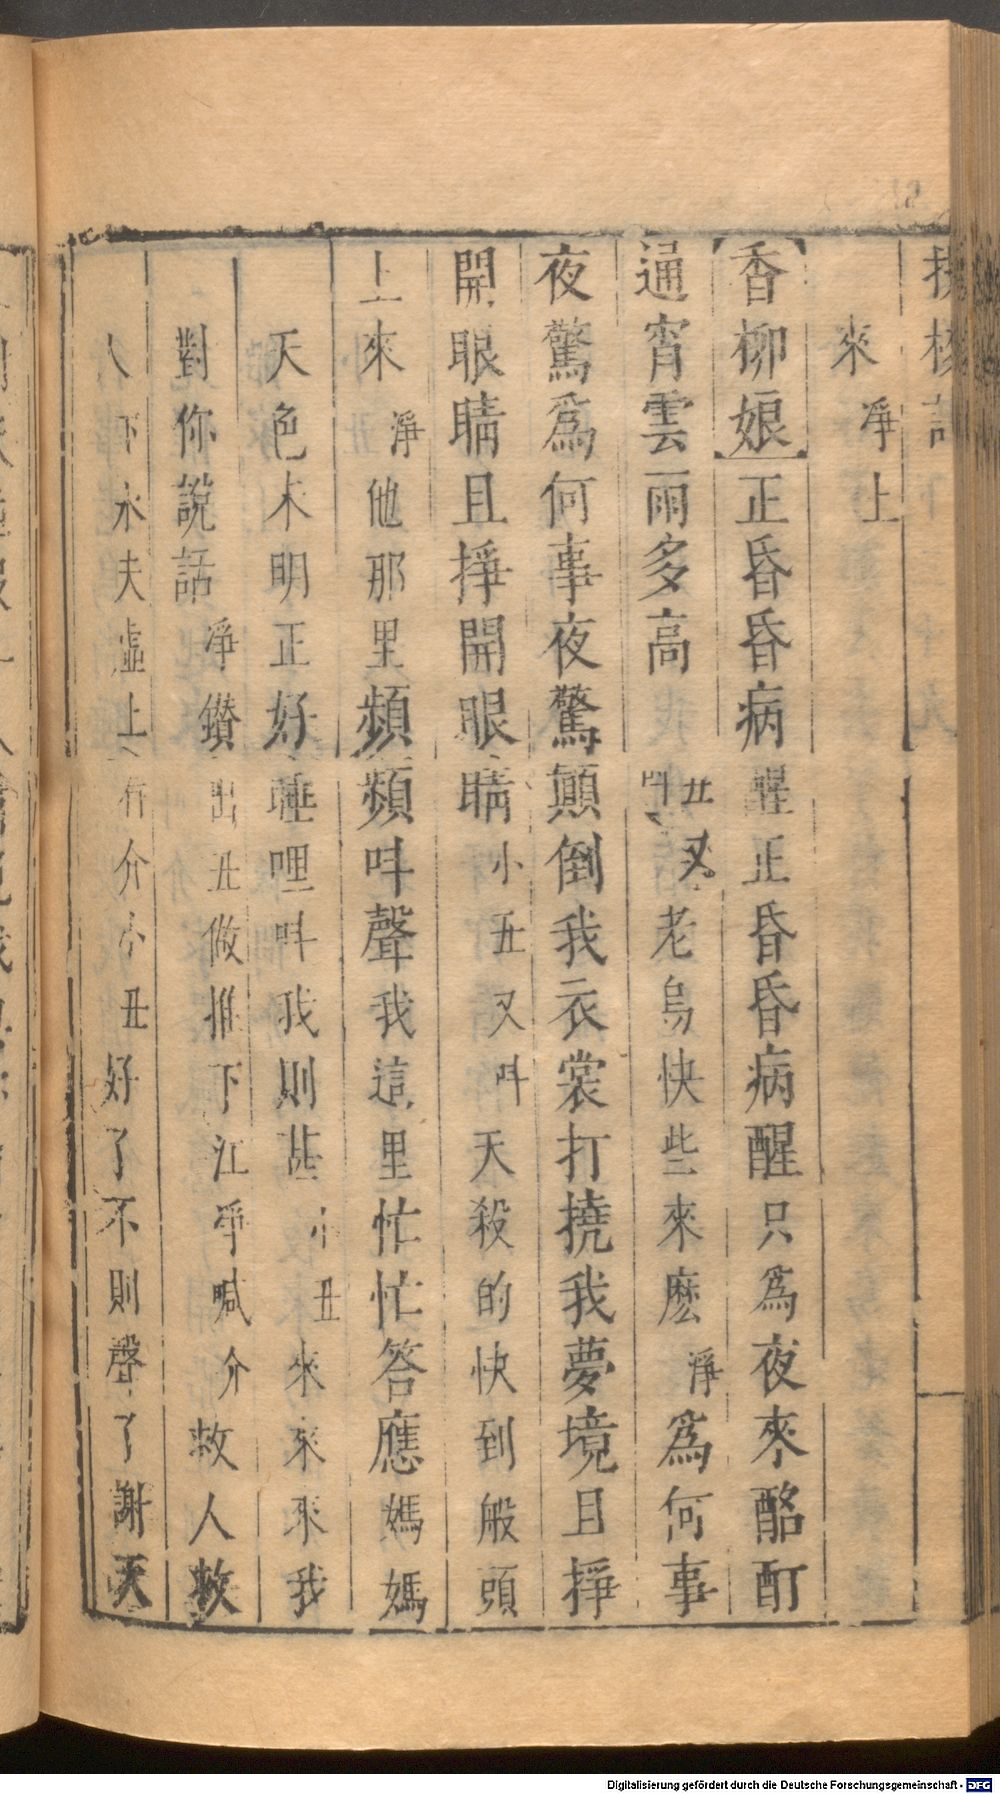 來淨上
【香柳娘】正昏昏病醒正昏昏病醒只爲夜來酩酊
通宵雲雨多高丑又叫老烏快些來麽淨爲何事
夜驚爲何事夜驚顛倒我衣裳打撓我夢境且掙
開眼睛且掙開眼睛小丑又叫天殺的快到船頭
上來淨他那里頻頻叫聲我這里忙忙答應媽媽
天色未明正好睡哩叫我則甚小丑來來來我
對你說話淨鑚出丑做推下江淨喊介救人救
人下水夫虛上介小丑好了不則聲了謝天
Digitalisierung gefördert durch die Deutsche Forschungsgemeinschaft - DFG